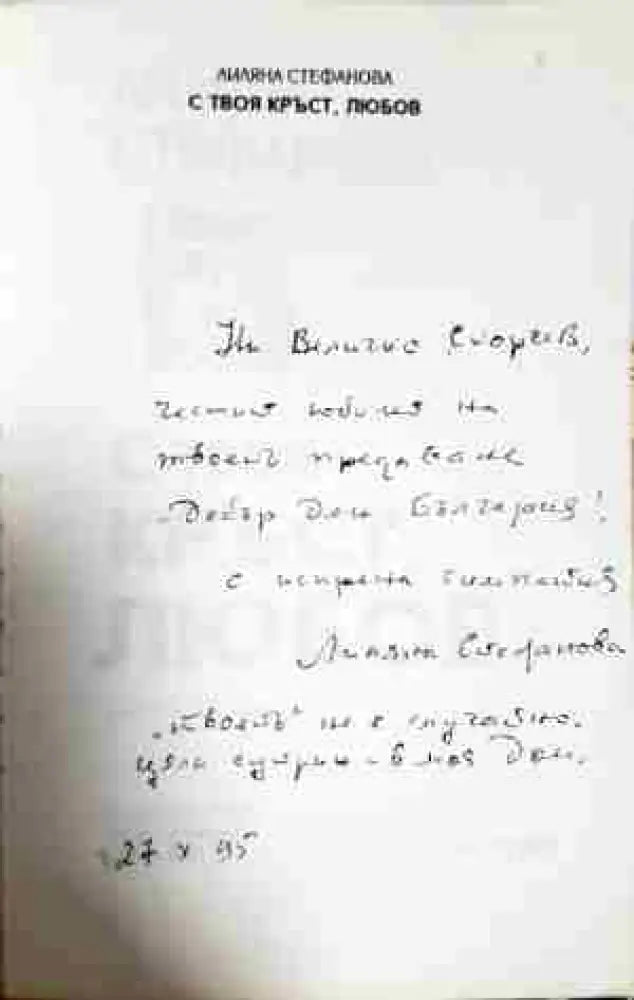 ЛИЛЯНА СТЕФАНОВА
С ТВОЯ КРЪСТ, ЛЮБОВ
На Величко Скорчев,
честит юбилей на
твоето предаване
„Добър Ден България“!
с искрена симпатия
Лиляна Стефанова
„твоето“ не е случайно.
цяла сутрин - в моя Дом.
27 X 95